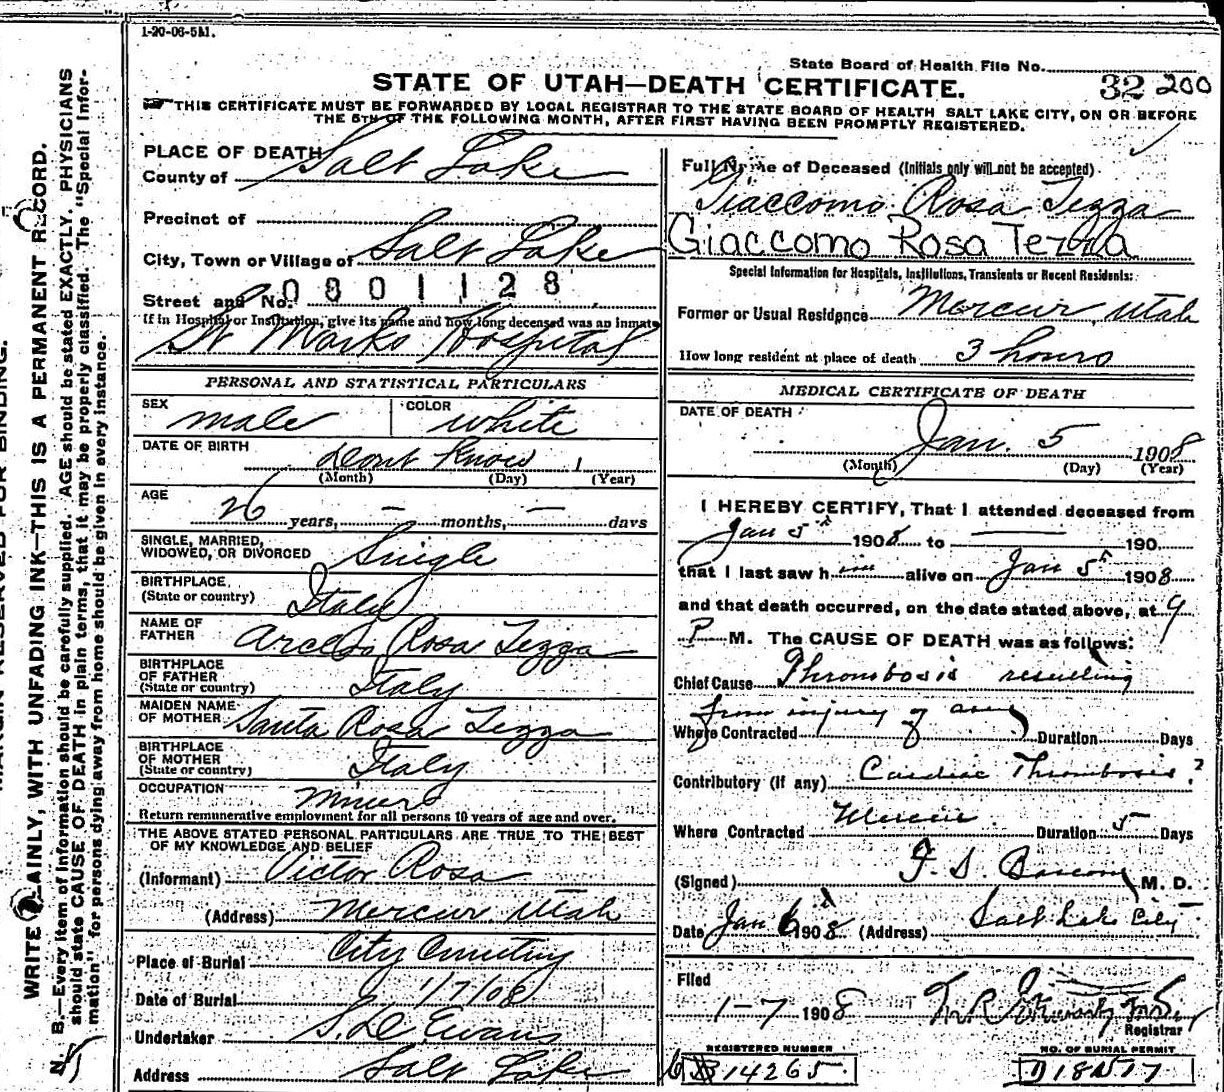 1-20-06-5M.
State Board of Health File No. 32 200
STATE OF UTAH—DEATH CERTIFICATE.
THIS CERTIFICATE MUST BE FORWARDED BY LOCAL REGISTRAR TO THE STATE BOARD OF HEALTH SALT LAKE CITY, ON OR BEFORE
THE 5TH OF THE FOLLOWING MONTH, AFTER FIRST HAVING BEEN PROMPTLY REGISTERED.
PLACE OF DEATH
County of Salt Lake
Precinct of
City, Town or Village of Salt Lake
Street and No. 0801128
If in Hospital or Institution, give its name and how long deceased was an inmate
St Marks Hospital
PERSONAL AND STATISTICAL PARTICULARS
SEX male COLOR white
DATE OF BIRTH dont know 1
(Month) (Day) (Year)
AGE 26 years, — months, — days
SINGLE, MARRIED,
WIDOWED, OR DIVORCED Single
BIRTHPLACE
(State or country) Italy
NAME OF
FATHER Rosa Tezza
BIRTHPLACE
OF FATHER
(State or country) Italy
MAIDEN NAME
OF MOTHER Santa Rosa Tezza
BIRTHPLACE
OF MOTHER
(State or country) Italy
OCCUPATION Miner
Return remunerative employment for all persons 10 years of age and over.
THE ABOVE STATED PERSONAL PARTICULARS ARE TRUE TO THE BEST
OF MY KNOWLEDGE AND BELIEF
(Informant) Victor Rosa
(Address) Mercur Utah
Place of Burial City Cemetery
Date of Burial 1/7/08
Undertaker Evans
Address Salt Lake
Full Name of Deceased (Initials only will not be accepted)
Giaccomo Rosa Tezza
Giaccomo Rosa Tezza
Special Information for Hospitals, Institutions, Transients or Recent Residents:
Former or Usual Residence Mercur, Utah
How long resident at place of death 3 hours
MEDICAL CERTIFICATE OF DEATH
DATE OF DEATH
Jan. 5 1908
(Month) (Day) (Year)
I HEREBY CERTIFY, That I attended deceased from
Jan 5th 1908 to — 190
that I last saw him alive on Jan 5th 1908
and that death occurred, on the date stated above, at 9
P M. The CAUSE OF DEATH was as follows:
Chief Cause Thrombosis resulting
from injury of arm
Where Contracted Duration Days
Contributory (if any) Cardiac Thrombosis?
Where Contracted Mercur Duration 5 Days
(Signed) F. S. Bascom M. D.
Date Jan 6 1908 (Address) Salt Lake City
Filed
1-7 1908
Registrar
REGISTERED NUMBER NO. OF BURIAL PERMIT
14265
MARGIN RESERVED FOR BINDING.
WRITE PLAINLY, WITH UNFADING INK—THIS IS A PERMANENT RECORD.
N. B.—Every item of information should be carefully supplied. AGE should be stated EXACTLY. PHYSICIANS
should state CAUSE OF DEATH in plain terms, that it may be properly classified. The "Special Infor-
mation" for persons dying away from home should be given in every instance.